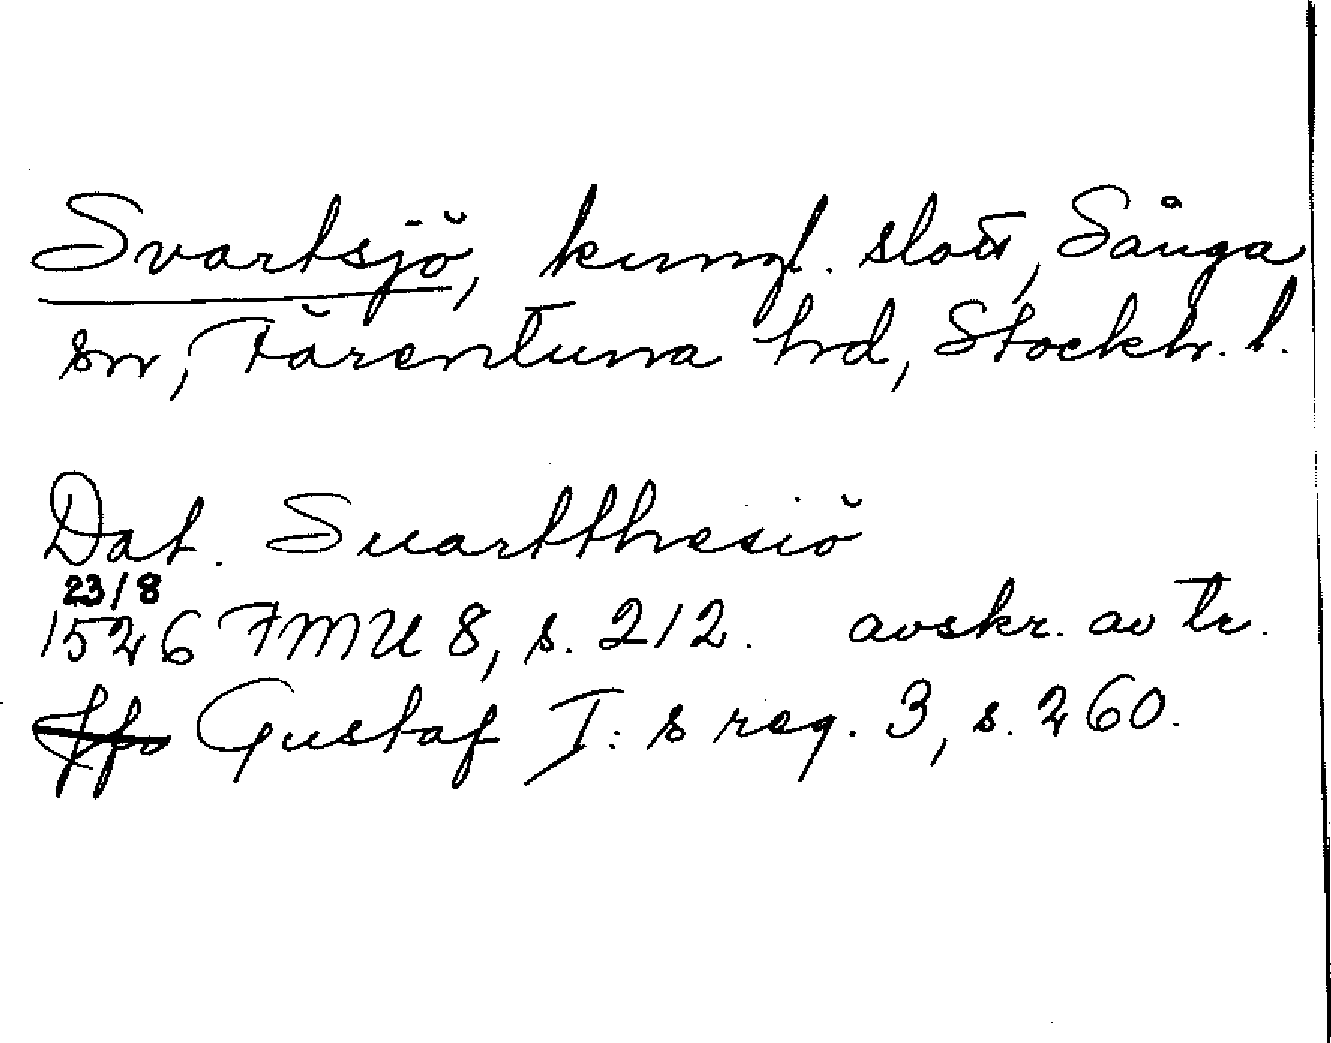 Svartsjö, kungl. slott, Sånga
sn, Färentuna hd, Stockh. l.
Dat. Suartthesiö
23/8
1526 FMU 8, s. 212. avskr. av tr.
Gustaf I:s reg. 3, s. 260.